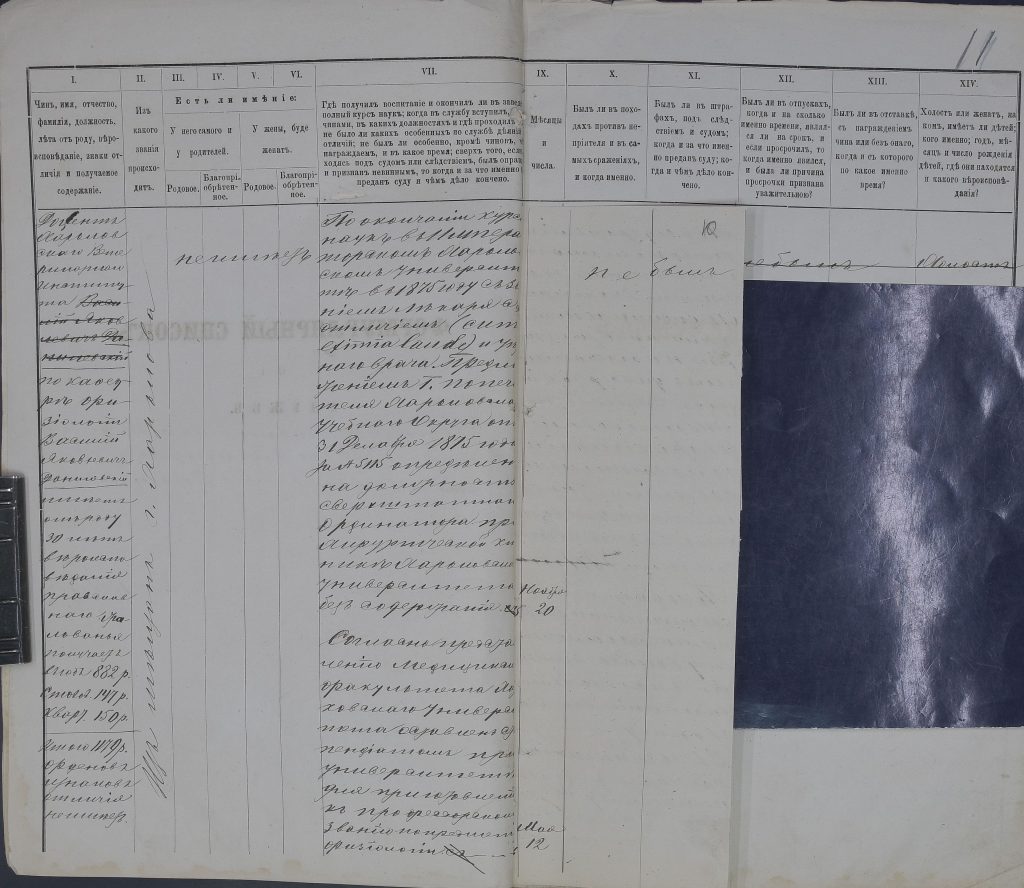 11
I.
II.
III.
IV.
V.
VI.
VII.
IX.
X.
XI.
XII.
XIII.
XIV.
Чинъ, имя, отчество,
фамилія, должность,
лѣтъ отъ роду, вѣро-
исповѣданіе, знаки от-
личія и получаемое
содержаніе.
Изъ
какого
званія
происхо-
дитъ.
Есть ли имѣніе:
У него самого и
у родителей.
У жены, буде
женатъ.
Родовое.
Благопрі-
обрѣтен-
ное.
Родовое.
Благопрі-
обрѣтен-
ное.
Гдѣ получилъ воспитаніе и окончилъ ли въ завед
полный курсъ наукъ; когда въ службу вступилъ,
чинами, въ какихъ должностяхъ и гдѣ проходилъ
не было ли какихъ особенныхъ по службѣ дѣяній
отличій; не былъ ли особенно, кромѣ чиновъ,
награждаемъ, и въ какое время; сверхъ того, если
ходясь подъ судомъ или слѣдствіемъ, былъ опра
и признанъ невиннымъ, то когда и за что именно
преданъ суду и чѣмъ дѣло кончено.
Мѣсяцы
и
числа.
Былъ ли въ похо-
дахъ противъ не-
пріятеля и въ са-
мыхъ сраженіяхъ,
и когда именно.
Былъ ли въ штра-
фахъ, подъ слѣд-
ствіемъ и судомъ;
когда и за что имен-
но преданъ суду; ко-
гда и чѣмъ дѣло кон-
чено.
Былъ ли въ отпускахъ,
когда и на сколько
именно времени, являл-
ся ли на срокъ, и
если просрочилъ, то
когда именно явился,
и была ли причина
просрочки признана
уважительною?
Былъ ли въ отставкѣ,
съ награжденіемъ
чина или безъ онаго,
когда и съ котораго
по какое именно
время?
Холостъ или женатъ, на
комъ, имѣетъ ли дѣтей;
кого именно; годъ, мѣ-
сяцъ и число рожденія
дѣтей, гдѣ они находятся
и какого вѣроисповѣ-
данія?
Доцентъ
Харьков
скаго Вете
ринарнаго
Институ
та Васи
лій Яков
левичъ Да
нилевскій
по каѳед
рѣ фи-
зіологіи
Василій
Яковлевичъ
Данилевскій
отъ роду
30 лѣтъ
вѣроиспо
вѣданія
православ
наго Жа
лованья
получаетъ
въ годъ 882 р.
Столов. 147 р.
Кварт. 150 р.
Итого 1179 р.
Орденовъ
и знаковъ
отличія
не имѣетъ.
Изъ мѣщанъ г. Харькова
не имѣетъ
По окончаніи курс
наукъ въ Импера
торскомъ Харьков
скомъ Университ
тѣ въ 1875 году съ зва
ніемъ лѣкаря съ
отличіемъ (cum
eximia laude) и уѣзд
наго врача. Предло
женіемъ Г. Попечи
теля Харьковскаго
Учебнаго Округа от
31 Декабря 1875 года
за № 5115 опредѣлен
на должность
сверхштатнаго
Ординатора при
Хирургической кли
никѣ Харьковскаго
Университета
безъ содержанія
Ноября
20
Согласно предста
вленію Медицинск
факультета Хар
ковскаго Универс
тета оставленъ сти
пендіатомъ при
Университетѣ
для приготовлен
къ профессорском
званію по предмет
физіологіи съ
Мая
12
10
не былъ
не былъ
Холостъ